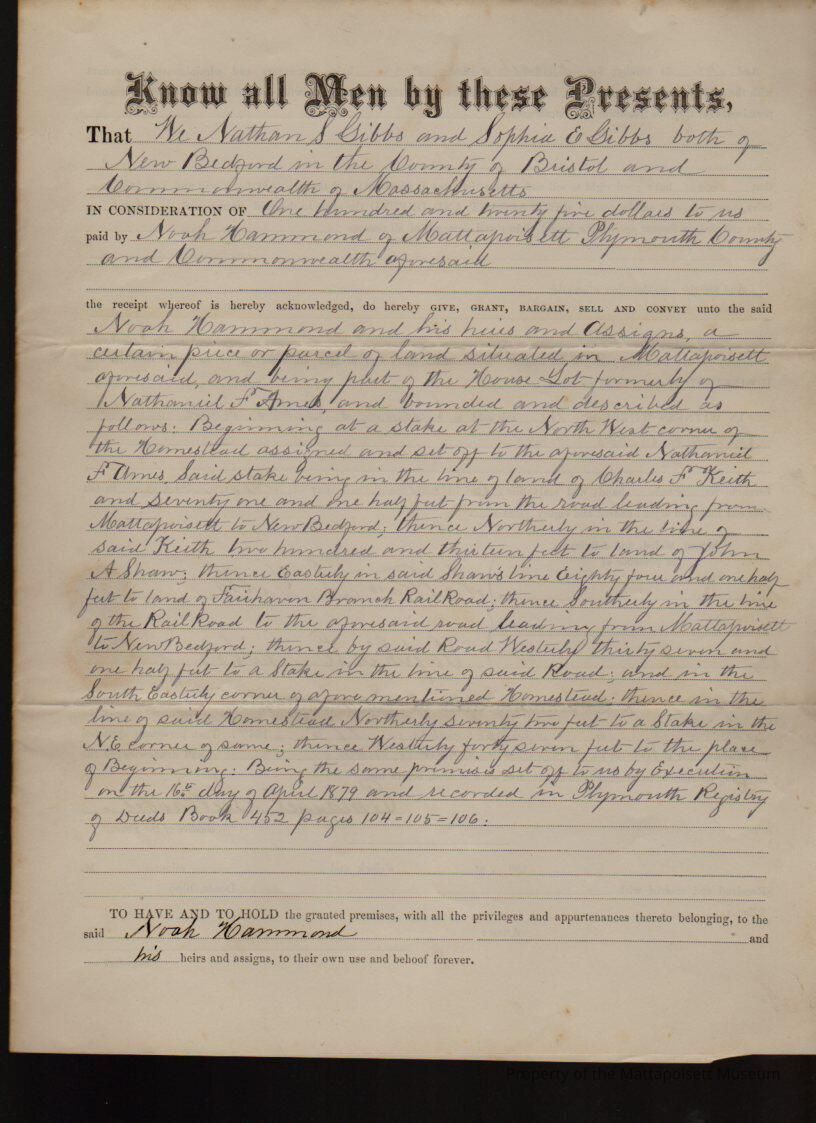 Know all Men by these Presents,
That We Nathan S Gibbs and Sophia E Gibbs both of
New Bedford in the County of Bristol and
Commonwealth of Massachusetts
IN CONSIDERATION OF One hundred and twenty five dollars to us
paid by Noah Hammond of Mattapoisett Plymouth County
and Commonwealth aforesaid
the receipt whereof is hereby acknowledged, do hereby GIVE, GRANT, BARGAIN, SELL AND CONVEY unto the said
Noah Hammond and his heirs and Assigns, a
certain piece or parcel of land situated in Mattapoisett
aforesaid, and being part of the House Lot formerly of
Nathaniel F Ames, and bounded and described as
follows: Beginning at a stake at the North West corner of
the Homestead assigned and set off to the aforesaid Nathaniel
F Ames Said stake being in the line of land of Charles F Keith
and seventy one and one half feet from the road leading from
Mattapoisett to New Bedford; thence Northerly in the line of
said Keith two hundred and thirteen feet to land of John
A Shaw; thence Easterly in said Shaw's line Eighty four and one half
feet to land of Fairhaven Branch Rail Road; thence Southerly in the line
of the Rail Road to the aforesaid road leading from Mattapoisett
to New Bedford; thence by said Road Westerly thirty seven and
one half feet to a Stake in the line of said Road; and in the
South Easterly corner of afore mentioned Homestead; thence in the
line of said Homestead Northerly seventy two feet to a Stake in the
N.E corner of same; thence Westerly forty seven feet to the place
of Beginning: Being the same premises set off to us by Execution
on the 16th day of April 1879 and recorded in Plymouth Registry
of Deeds Book 452 pages 104=105=106:
TO HAVE AND TO HOLD the granted premises, with all the privileges and appurtenances thereto belonging, to the
said Noah Hammond and
his heirs and assigns, to their own use and behoof forever.
Property of the Mattapoisett Museum